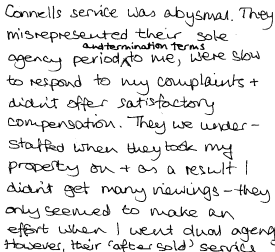 Connells service was abysmal. They
misrepresented their sole
and termination terms
agency period ^ to me, were slow
to respond to my complaints +
didn't offer satisfactory
compensation. They we under-
staffed when they took my
property on + as a result I
didn't get many viewings - they
only seemed to make an
effort when I went dual agency
However, their 'after sold' service